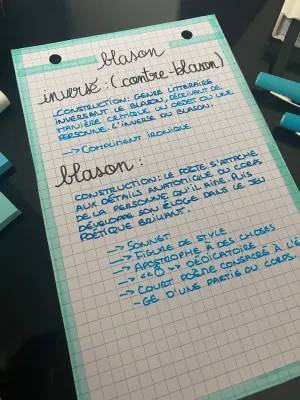 blason
inversé : (contre-blason)
CONSTRUCTION: GENRE LITTERAIRE
INVERSANT LE BLASON, DÉCRIVANT DE
MANIÈRE CRITIQUE OU OBJET OU UNE
PERSONNE. L'INVERSE DU BLASON.
-> COMPLIMENT IRONIQUE
blason :
CONSTRUCTION: LE POÈTE S'ATTACHE
AUX DÉTAILS ANATOMIQUE DU CORPS
DE LA PERSONNE QU'IL AIME PUIS
DÉVELOPPE SON ÉLOGE DANS LE JEU
POÉTIQUE BRILLANT.
-> SONNET
-> FIGURE DE STYLE
-> APOSTROPHE À DES CHOSES
-> «Ô» -> DÉDICATOIRE
-> COURT POÈME CONSACRÉ À L'É
-GE D'UNE PARTIE DU CORPS.